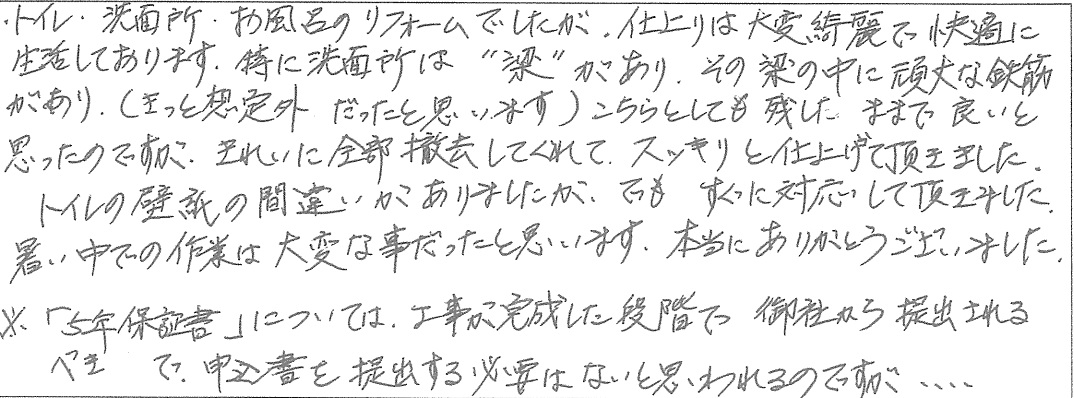 ・トイレ・洗面所・お風呂のリフォームでしたが、仕上りは大変綺麗で快適に
生活しております。特に洗面所は“梁”があり、その梁の中に頑丈な鉄筋
があり、(きっと想定外だったと思います)こちらとしても残したままで良いと
思ったのですが、きれいに全部撤去してくれて、スッキリと仕上げて頂きました。
トイレの壁紙の間違いがありましたが、でもすぐに対応して頂きました。
暑い中での作業は大変な事だったと思います。本当にありがとうございました。
※「5年保証書」については、工事が完成した段階で御社から提出される
べきで、申込書を提出する必要はないと思われるのですが・・・・